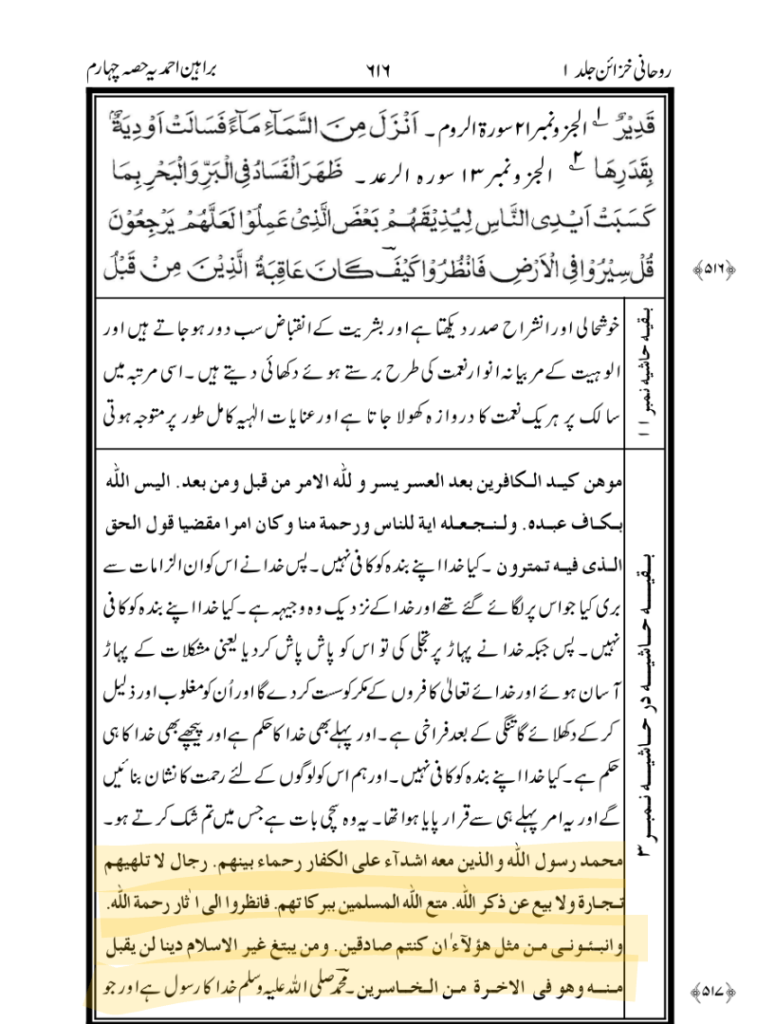 روحانی خزائن جلد ۱ ۶۱۶ براہین احمدیہ حصہ چہارم
قَدِیْرٌ ۱؎ الجزو نمبر ۲۱ سورۃ الروم۔ اَنْزَلَ مِنَ السَّمَآءِ مَآءً فَسَالَتْ اَوْدِیَةٌۢ
بِقَدَرِهَا ۲؎ الجزو نمبر ۱۳ سورہ الرعد۔ ظَهَرَ الْفَسَادُ فِی الْبَرِّ وَالْبَحْرِ بِمَا
كَسَبَتْ اَیْدِی النَّاسِ لِیُذِیْقَهُمْ بَعْضَ الَّذِیْ عَمِلُوْا لَعَلَّهُمْ یَرْجِعُوْنَ
قُلْ سِیْرُوْا فِی الْاَرْضِ فَانْظُرُوْا كَیْفَ كَانَ عَاقِبَةُ الَّذِیْنَ مِنْ قَبْلُ
﴿۵۱۶﴾
بقیہ حاشیہ نمبر ۱۱
خوشحالی اور انشراح صدر دیکھتا ہے اور بشریت کے انقباض سب دور ہوجاتے ہیں اور
الوہیت کے مربیانہ انوار نعمت کی طرح برستے ہوئے دکھائی دیتے ہیں۔ اسی مرتبہ میں
سالک پر ہریک نعمت کا دروازہ کھولا جاتا ہے اور عنایات الٰہیہ کامل طور پر متوجہ ہوتی
بقیہ حاشیہ در حاشیہ نمبر ۳
موهن كيد الكافرين بعد العسر يسر و لله الامر من قبل ومن بعد. اليس الله
بكاف عبده. ولنجعله اية للناس ورحمة منا وكان امرا مقضيا قول الحق
الذى فيه تمترون ۔ کیا خدا اپنے بندہ کو کافی نہیں۔ پس خدا نے اس کو ان الزامات سے
بری کیا جو اس پر لگائے گئے تھے اور خدا کے نزدیک وہ وجیہہ ہے۔ کیا خدا اپنے بندہ کو کافی
نہیں۔ پس جبکہ خدا نے پہاڑ پر تجلی کی تو اس کو پاش پاش کردیا یعنی مشکلات کے پہاڑ
آسان ہوئے اور خدائے تعالیٰ کافروں کے مکر کو سست کردے گا اور اُن کو مغلوب اور ذلیل
کرکے دکھلائے گا تنگی کے بعد فراخی ہے۔ اور پہلے بھی خدا کا حکم ہے اور پیچھے بھی خدا کا ہی
حکم ہے۔ کیا خدا اپنے بندہ کو کافی نہیں۔ اور ہم اس کو لوگوں کے لئے رحمت کا نشان بنائیں
گے اور یہ امر پہلے ہی سے قرار پایا ہوا تھا۔ یہ وہ سچی بات ہے جس میں تم شک کرتے ہو۔
محمد رسول الله والذين معه اشدآء على الكفار رحماء بينهم. رجال لا تلهيهم
تجارة ولا بيع عن ذكر الله. متع الله المسلمين ببركاتهم. فانظروا الى اٰثار رحمة الله.
وانبئونى من مثل هؤلآء ان كنتم صادقين. ومن يبتغ غير الاسلام دينا لن يقبل
منه وهو فى الاخرة من الخاسرين ۔ محمدؐ صلی اللہ علیہ وسلم خدا کا رسول ہے اور جو
﴿۵۱۷﴾